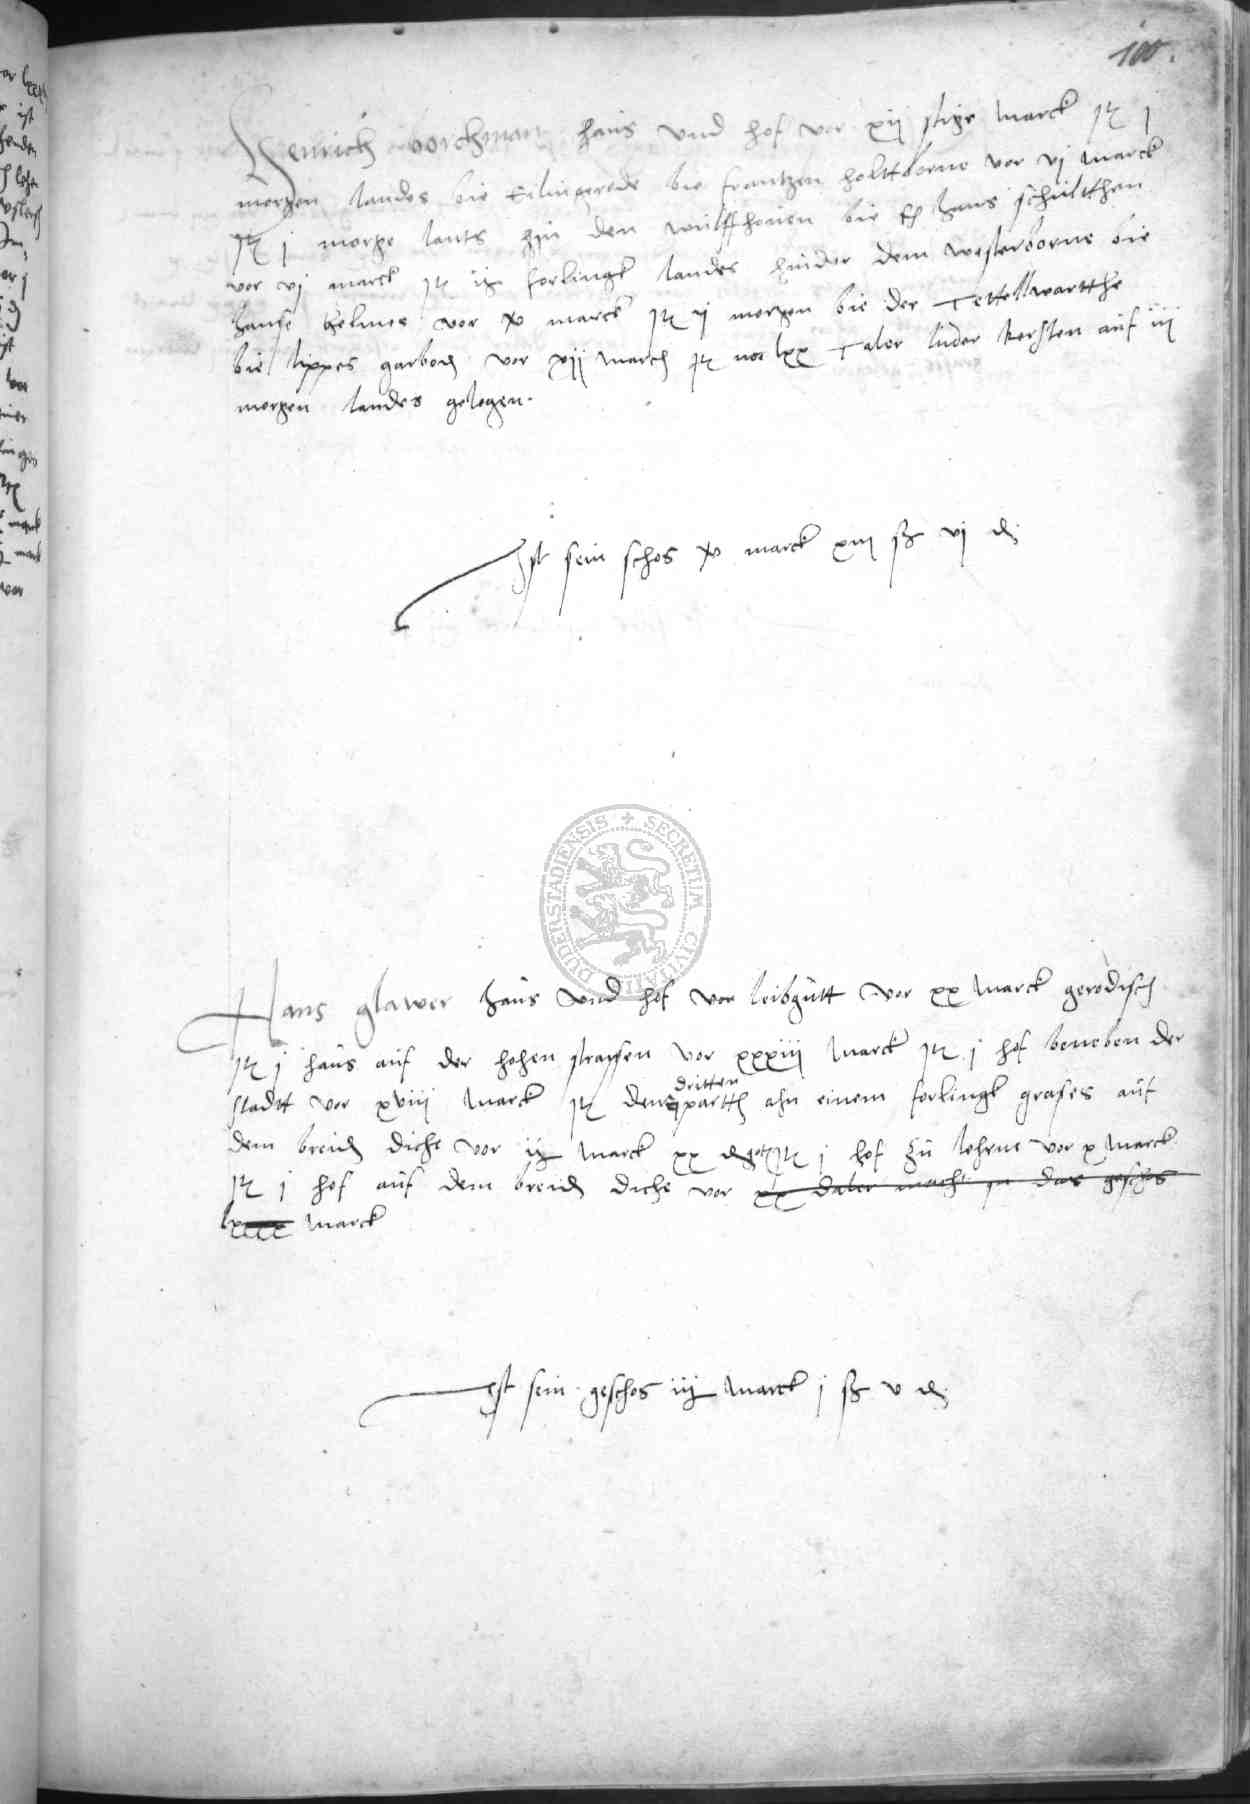 100.
Henrich borchman haus und hof vor xii stige marck It j
morgen landes bie Tilingerode bie frantzen holttborne vor vj marck
It j morge lants hin den wulffhouen bie Er hans schultthen
vor vj marck It iij forlingk landes hinder dem westerborne bie
hanse helmes vor xv marck It ij morgen bie der Tettellwartthe
bie lippes garboch vor xij march It noc lxx Taler luder kersten auf iii
morgen landes gelegen.
Ist sein schos xv marck xiii ß vj d
Hans glawer haus und hof vor leibgutt vor xx marck gerodisch
It j haus auf der hohen strassen vor xxxiii marck It j hof beneben der
stadtt vor xviii marck It den dritten partth ahn einem forlingk grases auf
dem breid diche vor iij marck xx d It j hof zu lehene vor x marck
It j hof auf dem breid diche vor xx daler macht in das geschos
marck
Ist sein geschos iiij marck j ß v d
SECRETUM CIVITATI DUDERSTADIENSIS